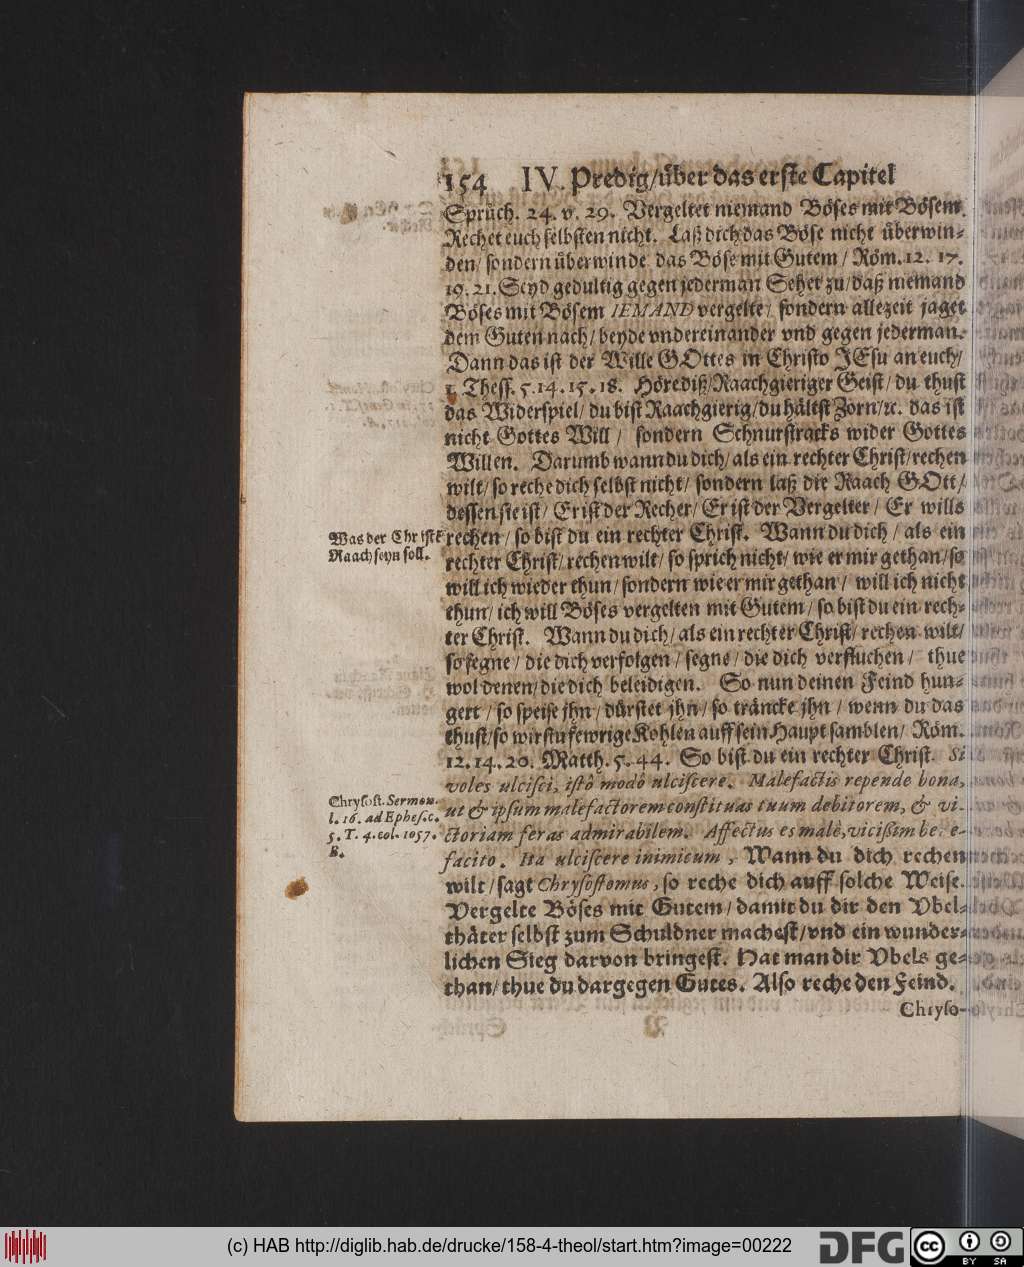 154 IV. Predig/über das erste Capitel
Sprüch. 24. v. 29. Vergeltet niemand Böses mit Bösem.
Rechet euch selbsten nicht. Laß dich das Böse nicht überwin-
den/ sondern überwinde das Böse mit Gutem/ Röm. 12. 17.
19. 21. Seyd gedultig gegen jederman Sehet zu/ daß niemand
Böses mit Bösem IEMAND vergelte/ sondern allezeit jaget
dem Guten nach/ beyde vndereinander vnd gegen jederman.
Dann das ist der Wille GOttes in Christo JEsu an euch/
1. Thess. 5. 14. 15. 18. Höre diß/ Raachgieriger Geist/ du thust
das Widerspiel/ du bist Raachgierig/ du hältst Zorn/ ꝛc. das ist
nicht Gottes Will/ sondern Schnurstracks wider Gottes
Willen. Darumb wann du dich/ als ein rechter Christ/ rechen
wilt/ so reche dich selbst nicht/ sondern laß die Raach GOtt/
dessen sie ist/ Er ist der Recher/ Er ist der Vergelter/ Er wills
Was der Christē
Raach seyn soll.
rechen/ so bist du ein rechter Christ. Wann du dich/ als ein
rechter Christ/ rechen wilt/ so sprich nicht/ wie er mir gethan/ so
will ich wieder thun/ sondern wie er mir gethan/ will ich nicht
thun/ ich will Böses vergelten mit Gutem/ so bist du ein rech-
ter Christ. Wann du dich/ als ein rechter Christ/ rechen wilt/
so segne/ die dich verfolgen/ segne/ die dich verfluchen/ thue
wol denen/ die dich beleidigen. So nun deinen Feind hun-
gert/ so speise jhn/ dürstet jhn/ so träncke jhn/ wenn du das
thust/ so wirstu fewrige Kohlen auff sein Haupt samblen/ Röm.
12. 14. 20. Matth. 5. 44. So bist du ein rechter Christ. Si
Chrysost. Sermon.
l. 16. ad Ephes. c.
5. T. 4. col. 1057.
B.
voles ulcisci, istô modô ulciscere. Malefactis repende bona,
ut & ipsum malefactorem constituas tuum debitorem, & vi-
ctoriam feras admirabilem. Affectus es malè, vicißim bene-
facito. Ita ulciscere inimicum, Wann du dich rechen
wilt/ sagt Chrysostomus, so reche dich auff solche Weise.
Vergelte Böses mit Gutem/ damit du dir den Vbel-
thäter selbst zum Schuldner machest/ vnd ein wunder-
lichen Sieg darvon bringest. Hat man dir Vbels ge-
than/ thue du dargegen Gutes. Also reche den Feind.
Chryso-
(c) HAB http://diglib.hab.de/drucke/158-4-theol/start.htm?image=00222
DFG
cc BY SA